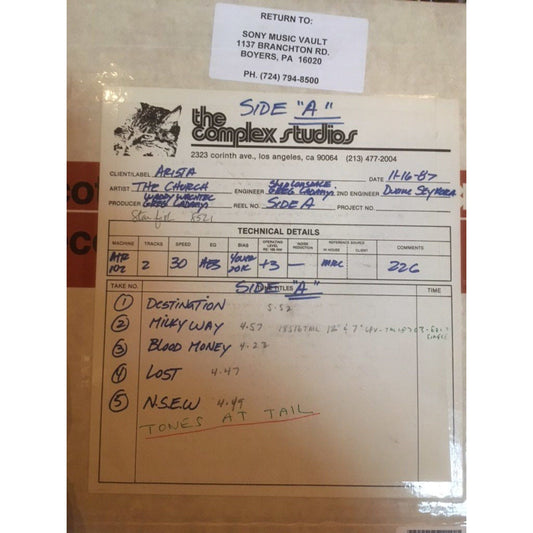 RETURN TO:
SONY MUSIC VAULT
1137 BRANCHTON RD.
BOYERS, PA 16020
PH. (724) 794-8500
SIDE "A"
the
complex studios
2323 corinth ave., los angeles, ca 90064 (213) 477-2004
CLIENT/LABEL ARISTA DATE 11-16-87
ARTIST THE CHURCH ENGINEER GREG LADANYI 2ND ENGINEER DUANE SEYKORA
PRODUCER WADDY WACHTEL GREG LADANYI REEL NO. SIDE A PROJECT NO.
8521
TECHNICAL DETAILS
MACHINE TRACKS SPEED EQ BIAS OPERATING LEVEL NOISE REDUCTION REFERENCE SOURCE IN HOUSE CLIENT COMMENTS
ATR 102 2 30 AES +3 — MRL 226
SIDE "A"
TAKE NO. TITLES TIME
1 DESTINATION 5.52
2 MILKY WAY 4.57 12" & 7"
3 BLOOD MONEY 4.23
4 LOST 4.47
5 N.S.E.W 4.49
TONES AT TAIL